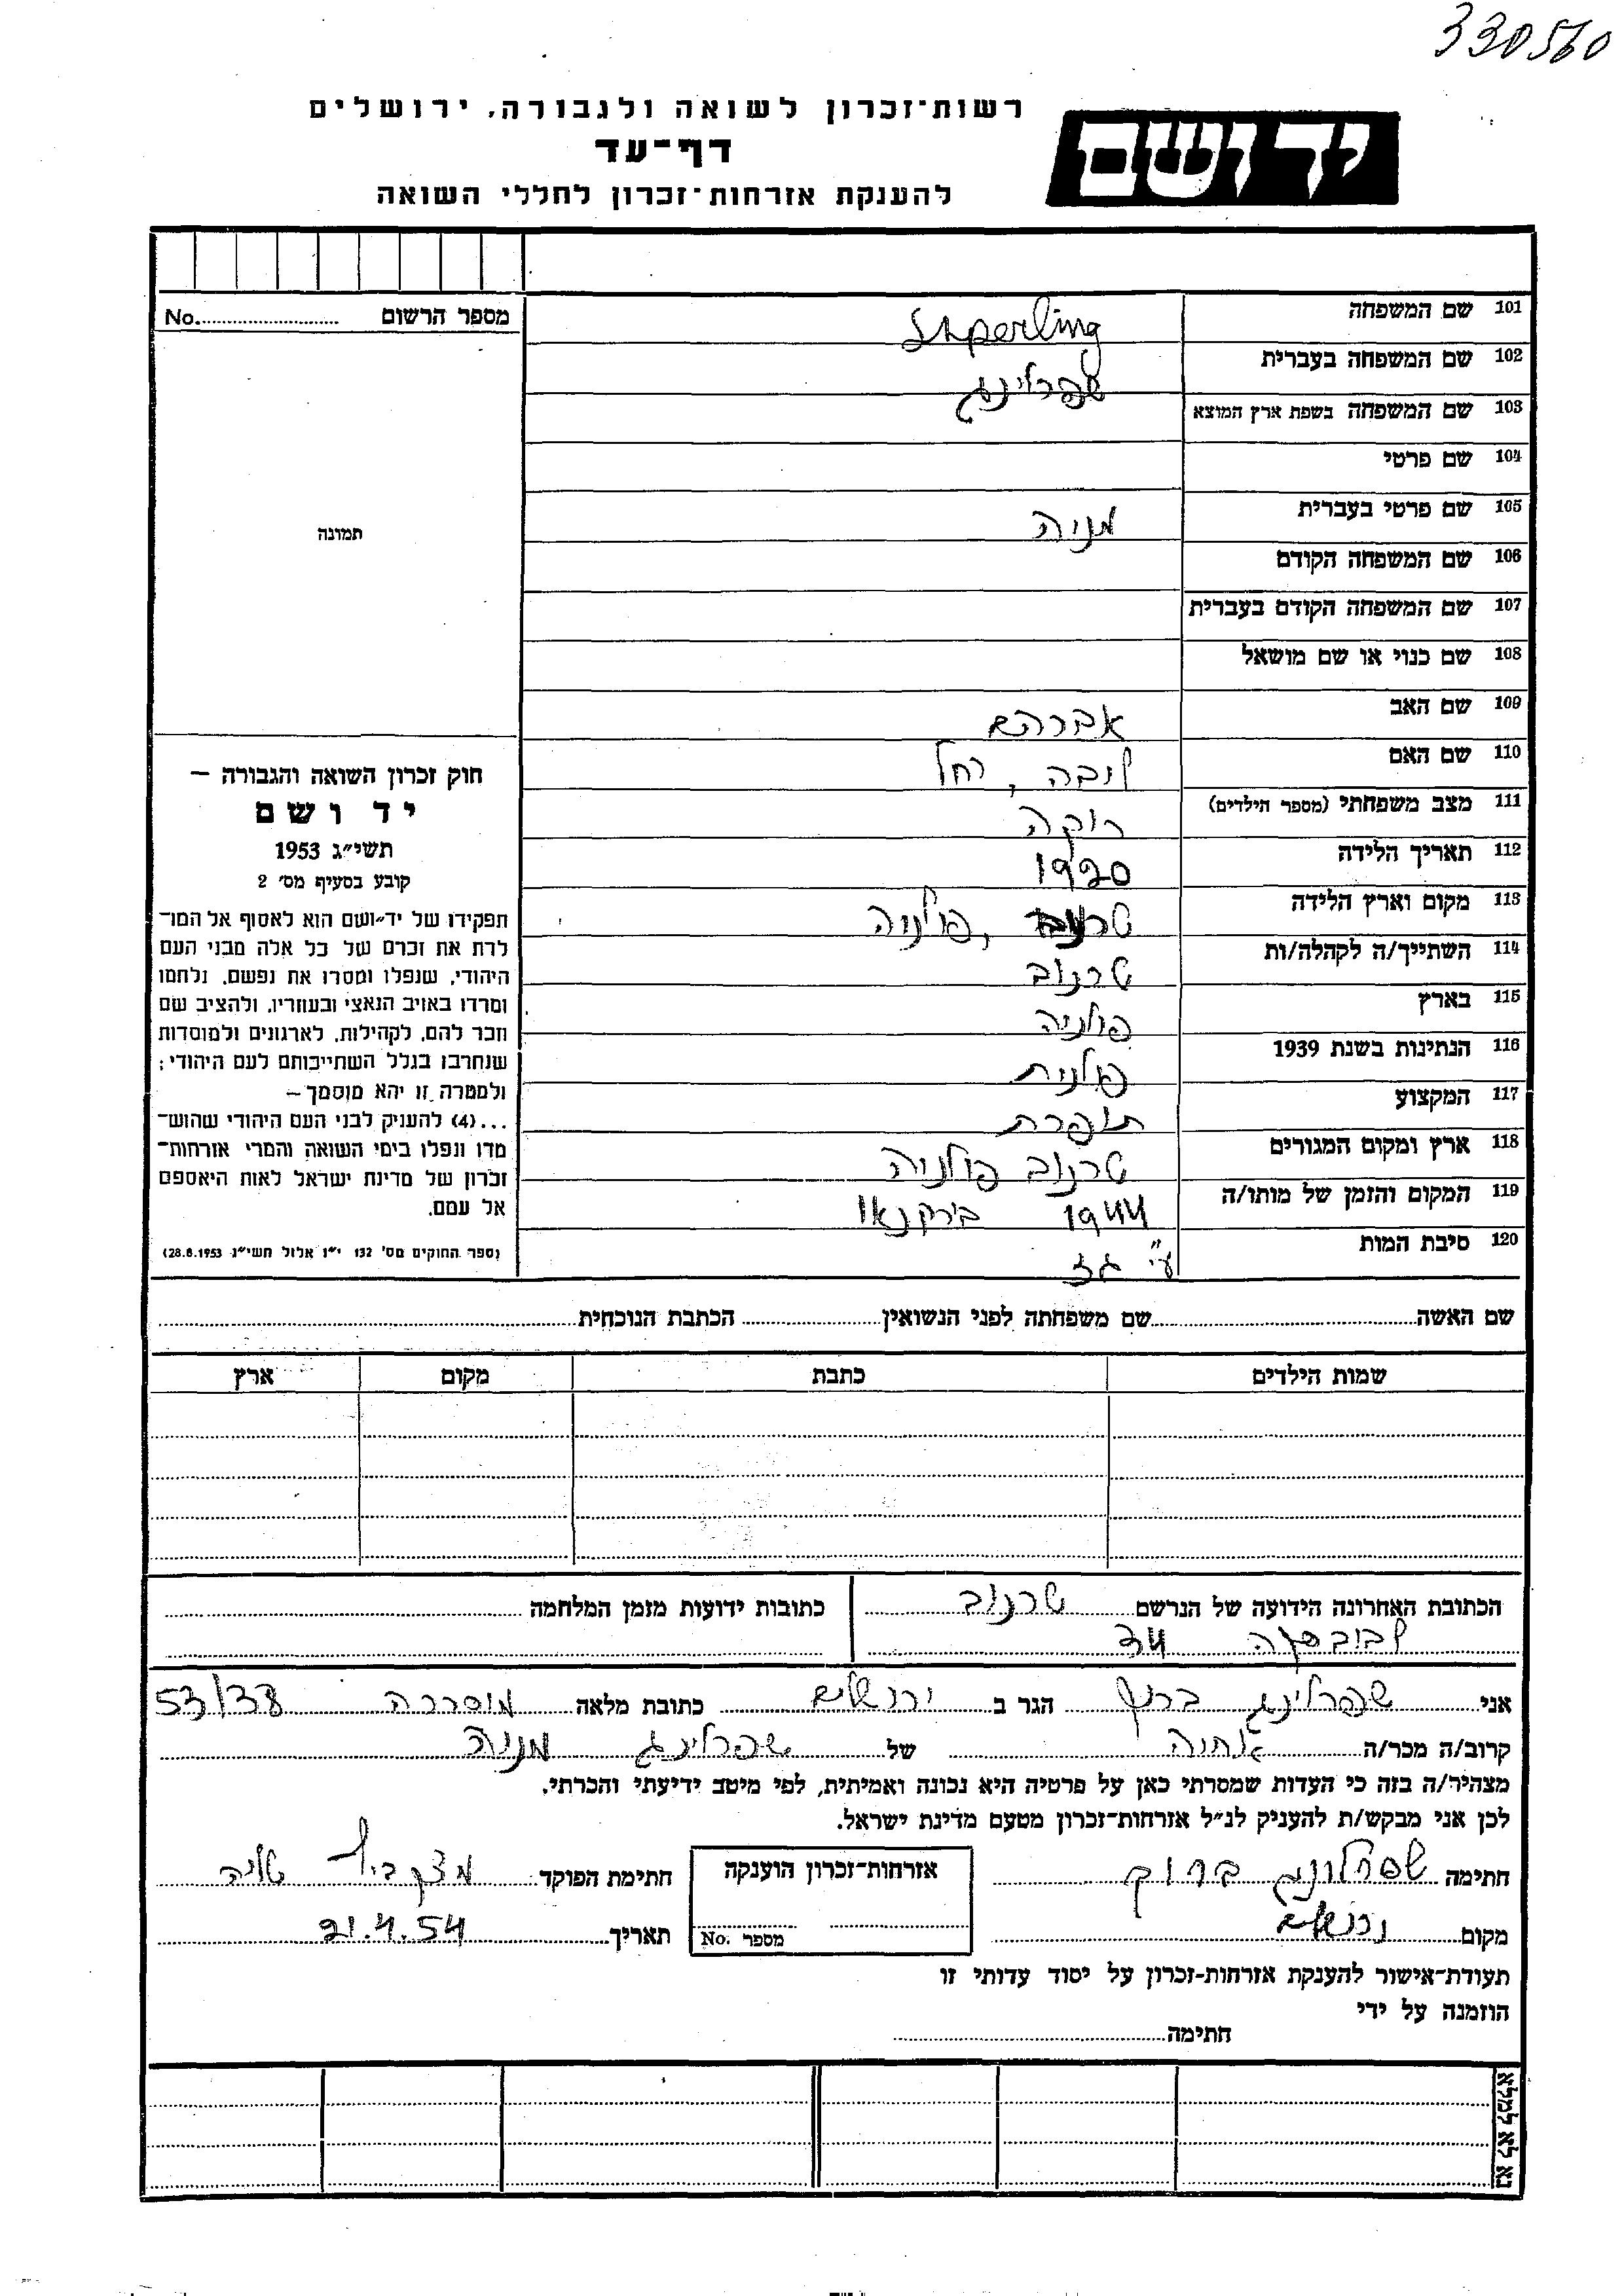 330560
רשות־זכרון לשואה ולגבורה, ירושלים
יד ושם
דף־עד
להענקת אזרחות־זכרון לחללי השואה
מספר הרשום No.
תמונה
חוק זכרון השואה והגבורה –
יד ושם
תשי״ג 1953
קובע בסעיף מס׳ 2
תפקידו של יד־ושם הוא לאסוף אל המו־
לדת את זכרם של כל אלה מבני העם
היהודי, שנפלו ומסרו את נפשם, נלחמו
ומרדו באויב הנאצי ובעוזריו, ולהציב שם
וזכר להם, לקהילות, לארגונים ולמוסדות
שנחרבו בגלל השתייכותם לעם היהודי;
ולמטרה זו יהא מוסמך –
...(4) להעניק לבני העם היהודי שהוש־
מדו ונפלו בימי השואה והמרי אזרחות־
זכרון של מדינת ישראל לאות היאספם
אל עמם.
(ספר החוקים מס׳ 132 י״ז אלול תשי״ג 28.8.1953)
101 שם המשפחה Shperling
102 שם המשפחה בעברית שפרלינג
103 שם המשפחה בשפת ארץ המוצא
104 שם פרטי
105 שם פרטי בעברית מניה
106 שם המשפחה הקודם
107 שם המשפחה הקודם בעברית
108 שם כנוי או שם מושאל
109 שם האב אברהם
110 שם האם ליבה, רחל
111 מצב משפחתי (מספר הילדים) רוקה
112 תאריך הלידה 1920
113 מקום וארץ הלידה טרנוב, פולניה
114 השתייך/ה לקהלה/ות טרנוב
115 בארץ פולניה
116 הנתינות בשנת 1939 פולנית
117 המקצוע תופרת
118 ארץ ומקום המגורים טרנוב פולניה
119 המקום והזמן של מותו/ה 1944 בירקנאו
120 סיבת המות ע״י גז
שם האשה שם משפחתה לפני הנשואין הכתבת הנוכחית
שמות הילדים כתבת מקום ארץ
הכתובת האחרונה הידועה של הנרשם טרנוב
לבובסקה 34
כתובות ידועות מזמן המלחמה
אני שפרלינג ברוך הגר ב ירושלים כתובת מלאה מוסררה 53/38
קרוב/ה מכר/ה אחיה של שפרלינג מניה
מצהיר/ה בזה כי העדות שמסרתי כאן על פרטיה היא נכונה ואמיתית, לפי מיטב ידיעתי והכרתי.
לכן אני מבקש/ת להעניק לנ״ל אזרחות־זכרון מטעם מדינת ישראל.
חתימה שפרלינג ברוך
אזרחות־זכרון הוענקה
מספר No.
חתימת הפוקד
מקום ירושלים
תאריך 21.4.54
תעודת־אישור להענקת אזרחות־זכרון על יסוד עדותי זו
הוזמנה על ידי
חתימה
נא לא למלא